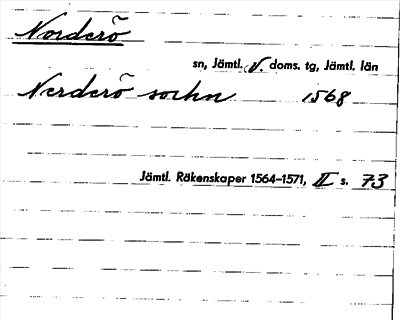 Norderö
sn, Jämtl. V. doms. tg, Jämtl. län
Nerderö sochn 1568
Jämtl. Räkenskaper 1564–1571, II s. 73